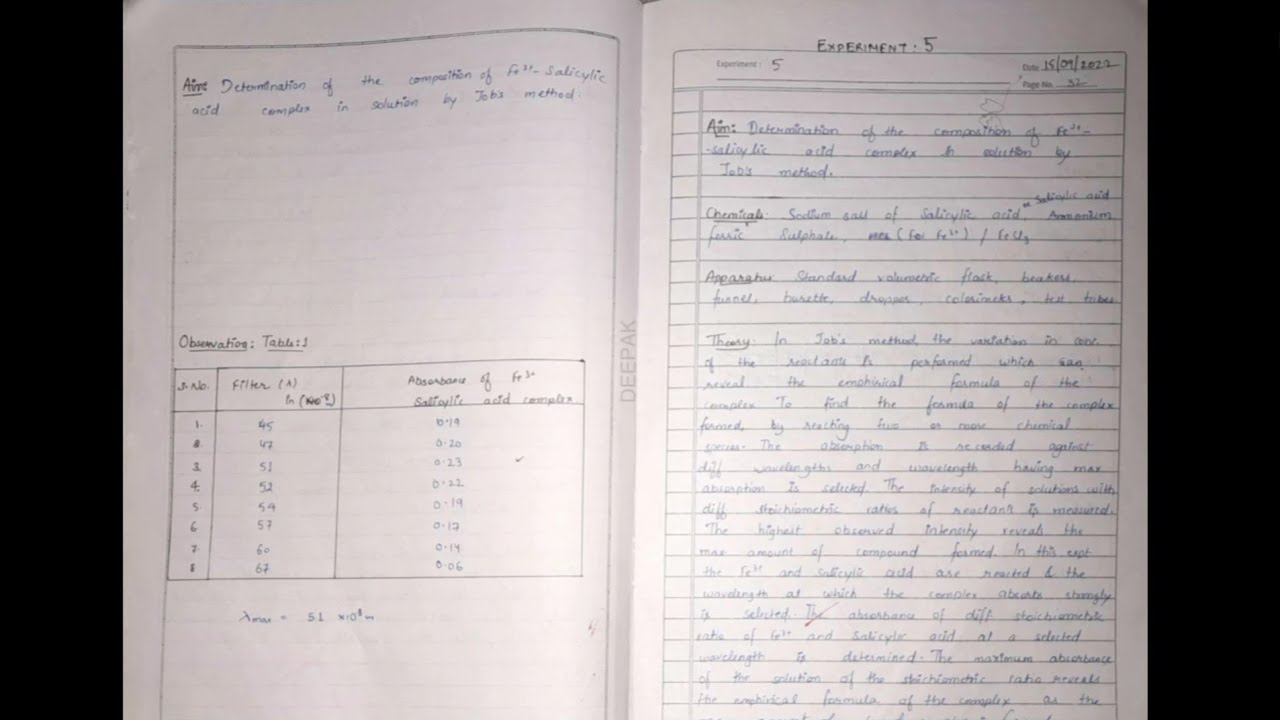 Aim: Determination of the composition of Fe³⁺- Salicylic
acid complex in solution by Job's method.
Observation: Table:1
S.No. Filter (λ) Absorbance of Fe³⁺
In ( Salicylic acid complex.
1. 45 0.19
2. 47 0.20
3. 51 0.23 ✓
4. 52 0.22
5. 54 0.19
6. 57 0.17
7. 60 0.14
8 67 0.06
λmax = 51 ×10⁸m
DEEPAK
EXPERIMENT: 5
Experiment: 5
Date: 15/09/2022
Page No. 32
Aim: Determination of the composition of Fe³⁺-
-salicylic acid complex in solution by
Job's method.
or Salicylic acid
Chemicals: Sodium salt of Salicylic acid, Ammonium
ferric Sulphate, (for Fe³⁺) / FeCl₃
Apparatus: Standard volumetric flask, beakers,
funnel, burette, dropper, colorimeter, test tubes
Theory: In Job's method, the variation in conc.
of the reactants is performed which can
reveal the emphirical formula of the
complex To find the formula of the complex
formed, by reacting two or more chemical
species. The absorption is recorded against
diff wavelengths and wavelength having max
absorption is selected. The intensity of solutions with
diff stoichiometric ratios of reactants is measured.
The highest observed intensity reveals the
max amount of compound formed. In this expt
the Fe³⁺ and Salicylic acid are reacted & the
wavelength at which the complex absorbs strongly
is selected. The absorbance of diff stoichiometric
ratio of Fe³⁺ and Salicylic acid at a selected
wavelength is determined. The maximum absorbance
of the solution of the stoichiometric ratio reveals
the emphirical formula of the complex as the
amount of